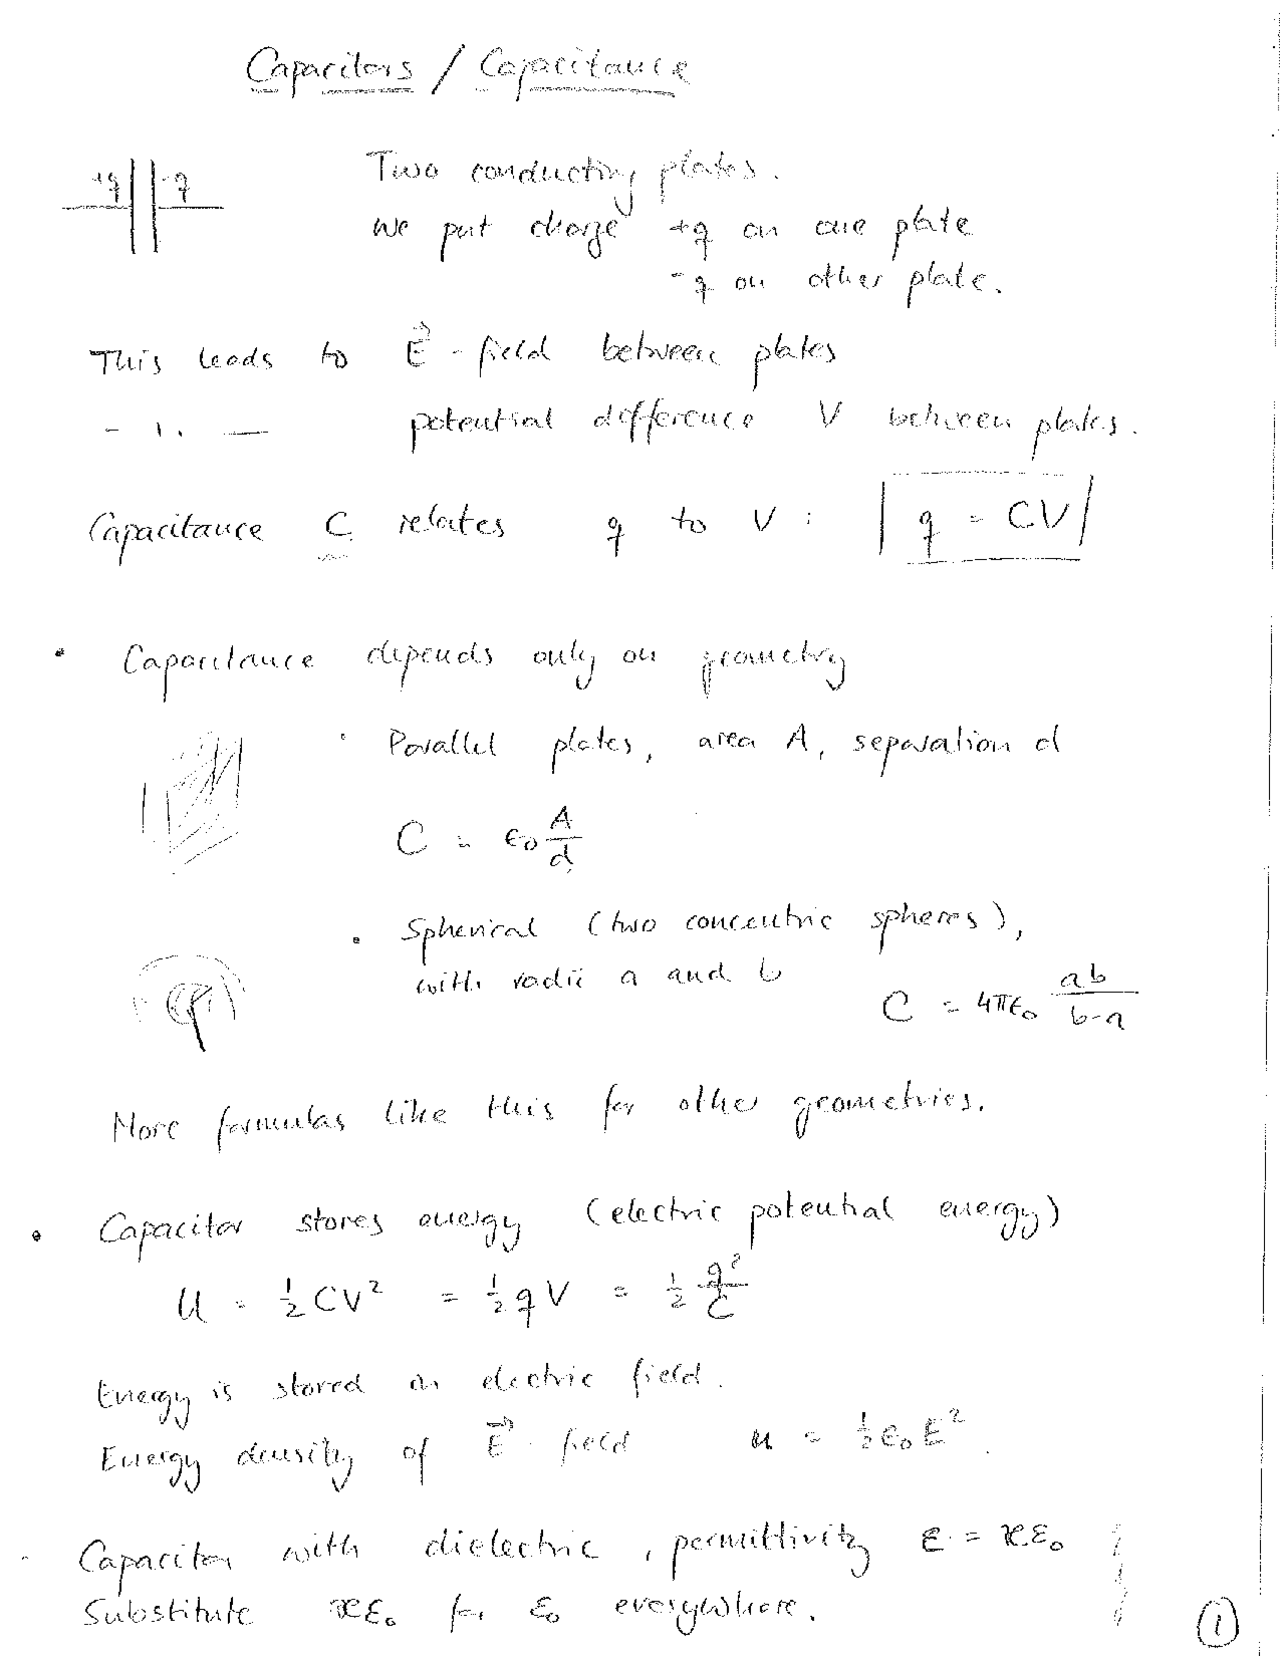 Capacitors / Capacitance
+q -q
Two conducting plates.
We put charge +q on one plate
-q on other plate.
This leads to E⃗ - field between plates
- ı ı - potential difference V between plates.
Capacitance C relates q to V : q = CV
• Capacitance depends only on geometry
• Parallel plates, area A, separation d
C = ε₀ A/d
• Spherical (two concentric spheres),
with radii a and b
C = 4πε₀ ab/(b-a)
More formulas like this for other geometries.
• Capacitor stores energy (electric potential energy)
U = ½ CV² = ½ qV = ½ q²/C
Energy is stored in electric field.
Energy density of E⃗ - field u = ½ ε₀ E².
• Capacitor with dielectric, permittivity ε = κε₀
Substitute κε₀ for ε₀ everywhere.
1